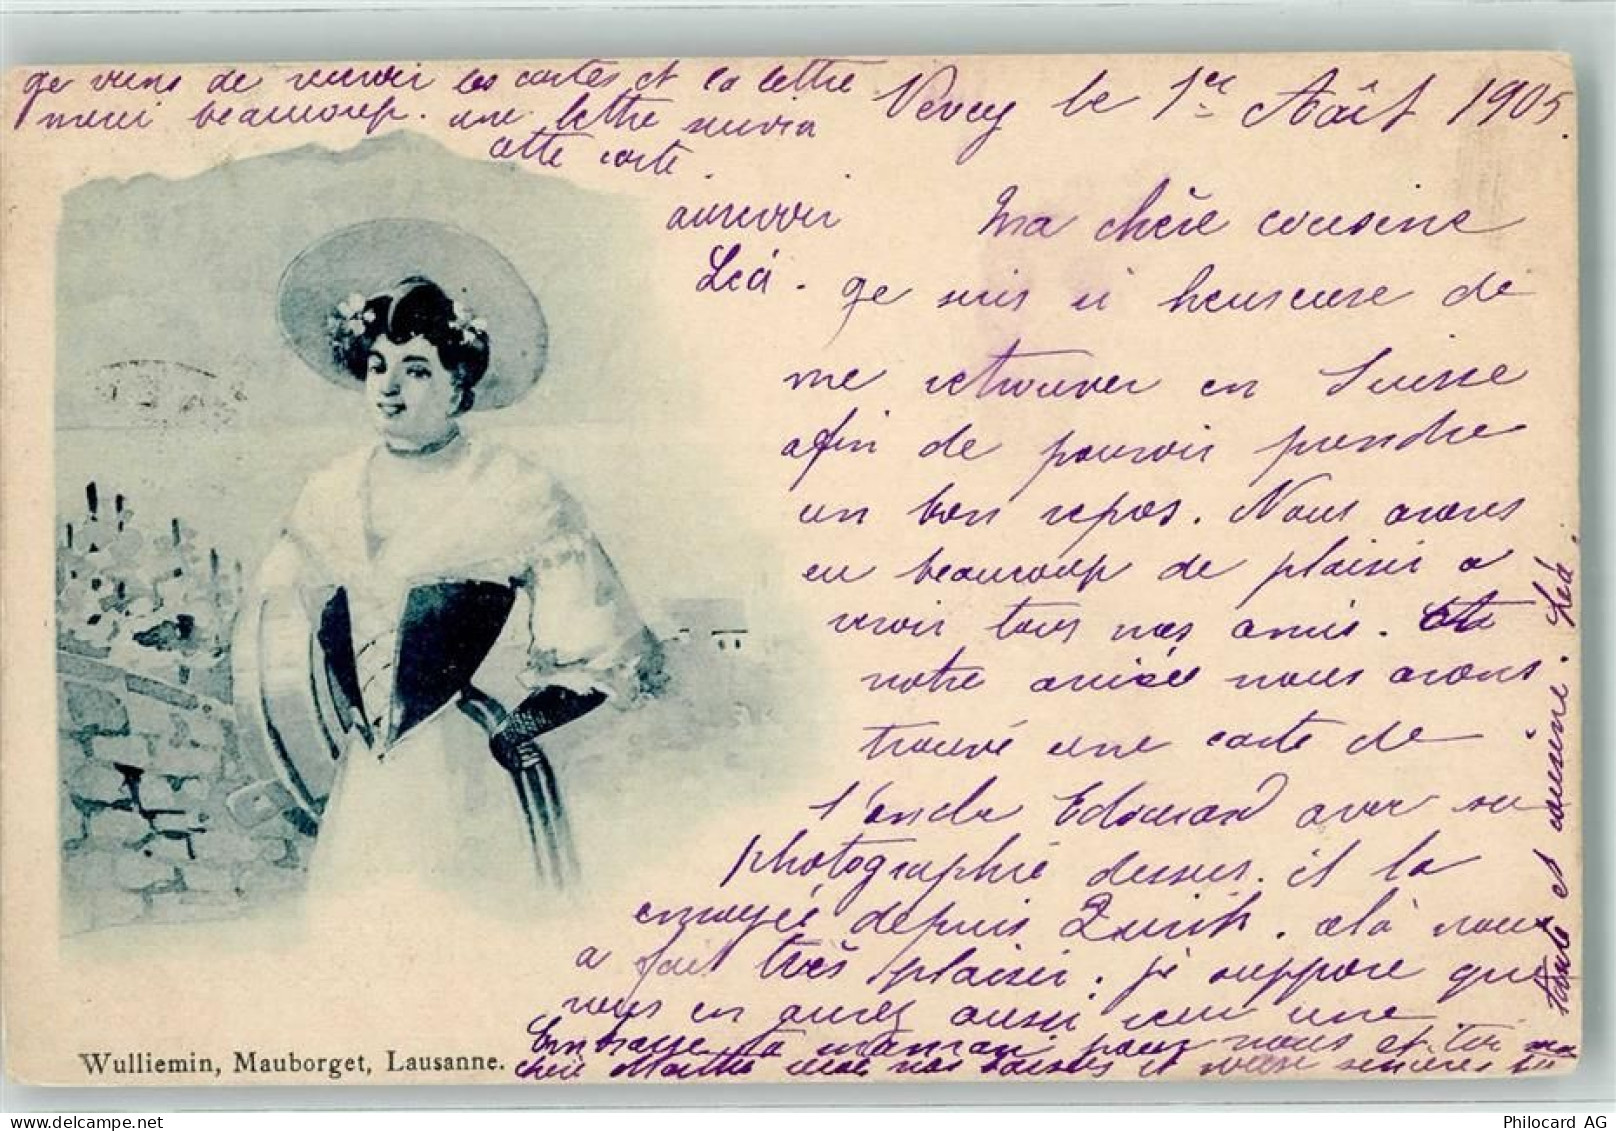 Vevey le 1er Août 1905.
Ma chère cousine
je suis si heureuse de
me retrouver en Suisse
afin de pouvoir prendre
un bon repos. Nous avons
eu beaucoup de plaisir a
revoir tous nos amis. A
notre arrivée nous avons
trouvé une carte de
l'oncle Edouard avec sa
photographie dessus. il la
envoyée depuis Zurich. celà nous
a fait très plaisir. je suppose que
vous en aurez aussi reçu une.
Embrasse ta maman pour nous et toi ma
chère Marthe nos baisers et
tante et cousine. Léa.
je viens de recevoir les cartes et la lettre
merci beaucoup. une lettre suivra
cette carte.
aurevoir
Léa.
Wulliemin, Mauborget, Lausanne.
Philocard AG